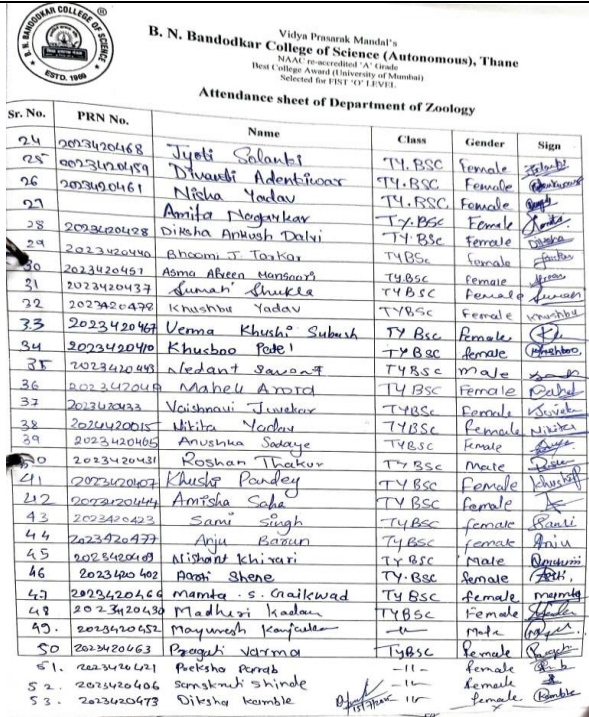 B. N. BANDODKAR COLLEGE OF SCIENCE
ESTD. 1969
Vidya Prasarak Mandal's
B. N. Bandodkar College of Science (Autonomous), Thane
NAAC re-accredited 'A' Grade
Best College Award (University of Mumbai)
Selected for FIST 'O' LEVEL
Attendance sheet of Department of Zoology
Sr. No. PRN No. Name Class Gender Sign
24 2023420468 Jyoti Solanki TY.BSC female
25 2023420459 TY.BSC Female
26 2023420461 Nisha Yadav TY.BSC. Female
27 Amita Nagarkar TY.BSC Female
28 2023420428 Diksha Ankush Dalvi TY.BSc Female Diksha
29 2023420440 Bhoomi J. Tarkar TYBSc female
30 2023420457 Asma Afreen Mansoori TY.BSC female
31 2023420437 Suman Shukla TYBSC Female Suman
32 2023420478 Khushbu Yadav TYBSC Female Khushbu
33 2023420467 Verma Khushi Subash TY Bsc Female
34 2023420410 Khusboo Patel TYBSC female Khushboo
35 2023420443 Vedant Sawant TYBSC male
36 Mahek Arora TYBSC Female Mahek
37 2023420433 Vaishnavi Juvekar TYBSC Female
38 Nikita Yadav TYBSC Female Nikita
39 2023420465 Anushka TYBSC Female
40 2023420431 Roshan Thakur TYBSC Male
41 2023420407 Khushi Pandey TYBSC Female Khushi
42 2023420444 Amisha Saha TYBSC female
43 2023420423 Sami Singh TYBSC female
44 2023420477 Anju Barun TYBSC female Anju
45 Nishant Khirari TYBSC Male
46 2023420402 Aarti Shene TY.BSC female
47 2023420466 Mamta . S. Gaikwad TY BSC female mamta
48 2023420430 Madhuri Kadam TYBSC Female
49. 2023420452 Mayuresh -11- Male
50 2023420463 Pragati Varma TyBSC Female
51. 2023420421 Parab -11- female
52. 2023420406 Sanskruti Shinde -11- female
53. 2023420473 Diksha Kamble -11- female Kamble